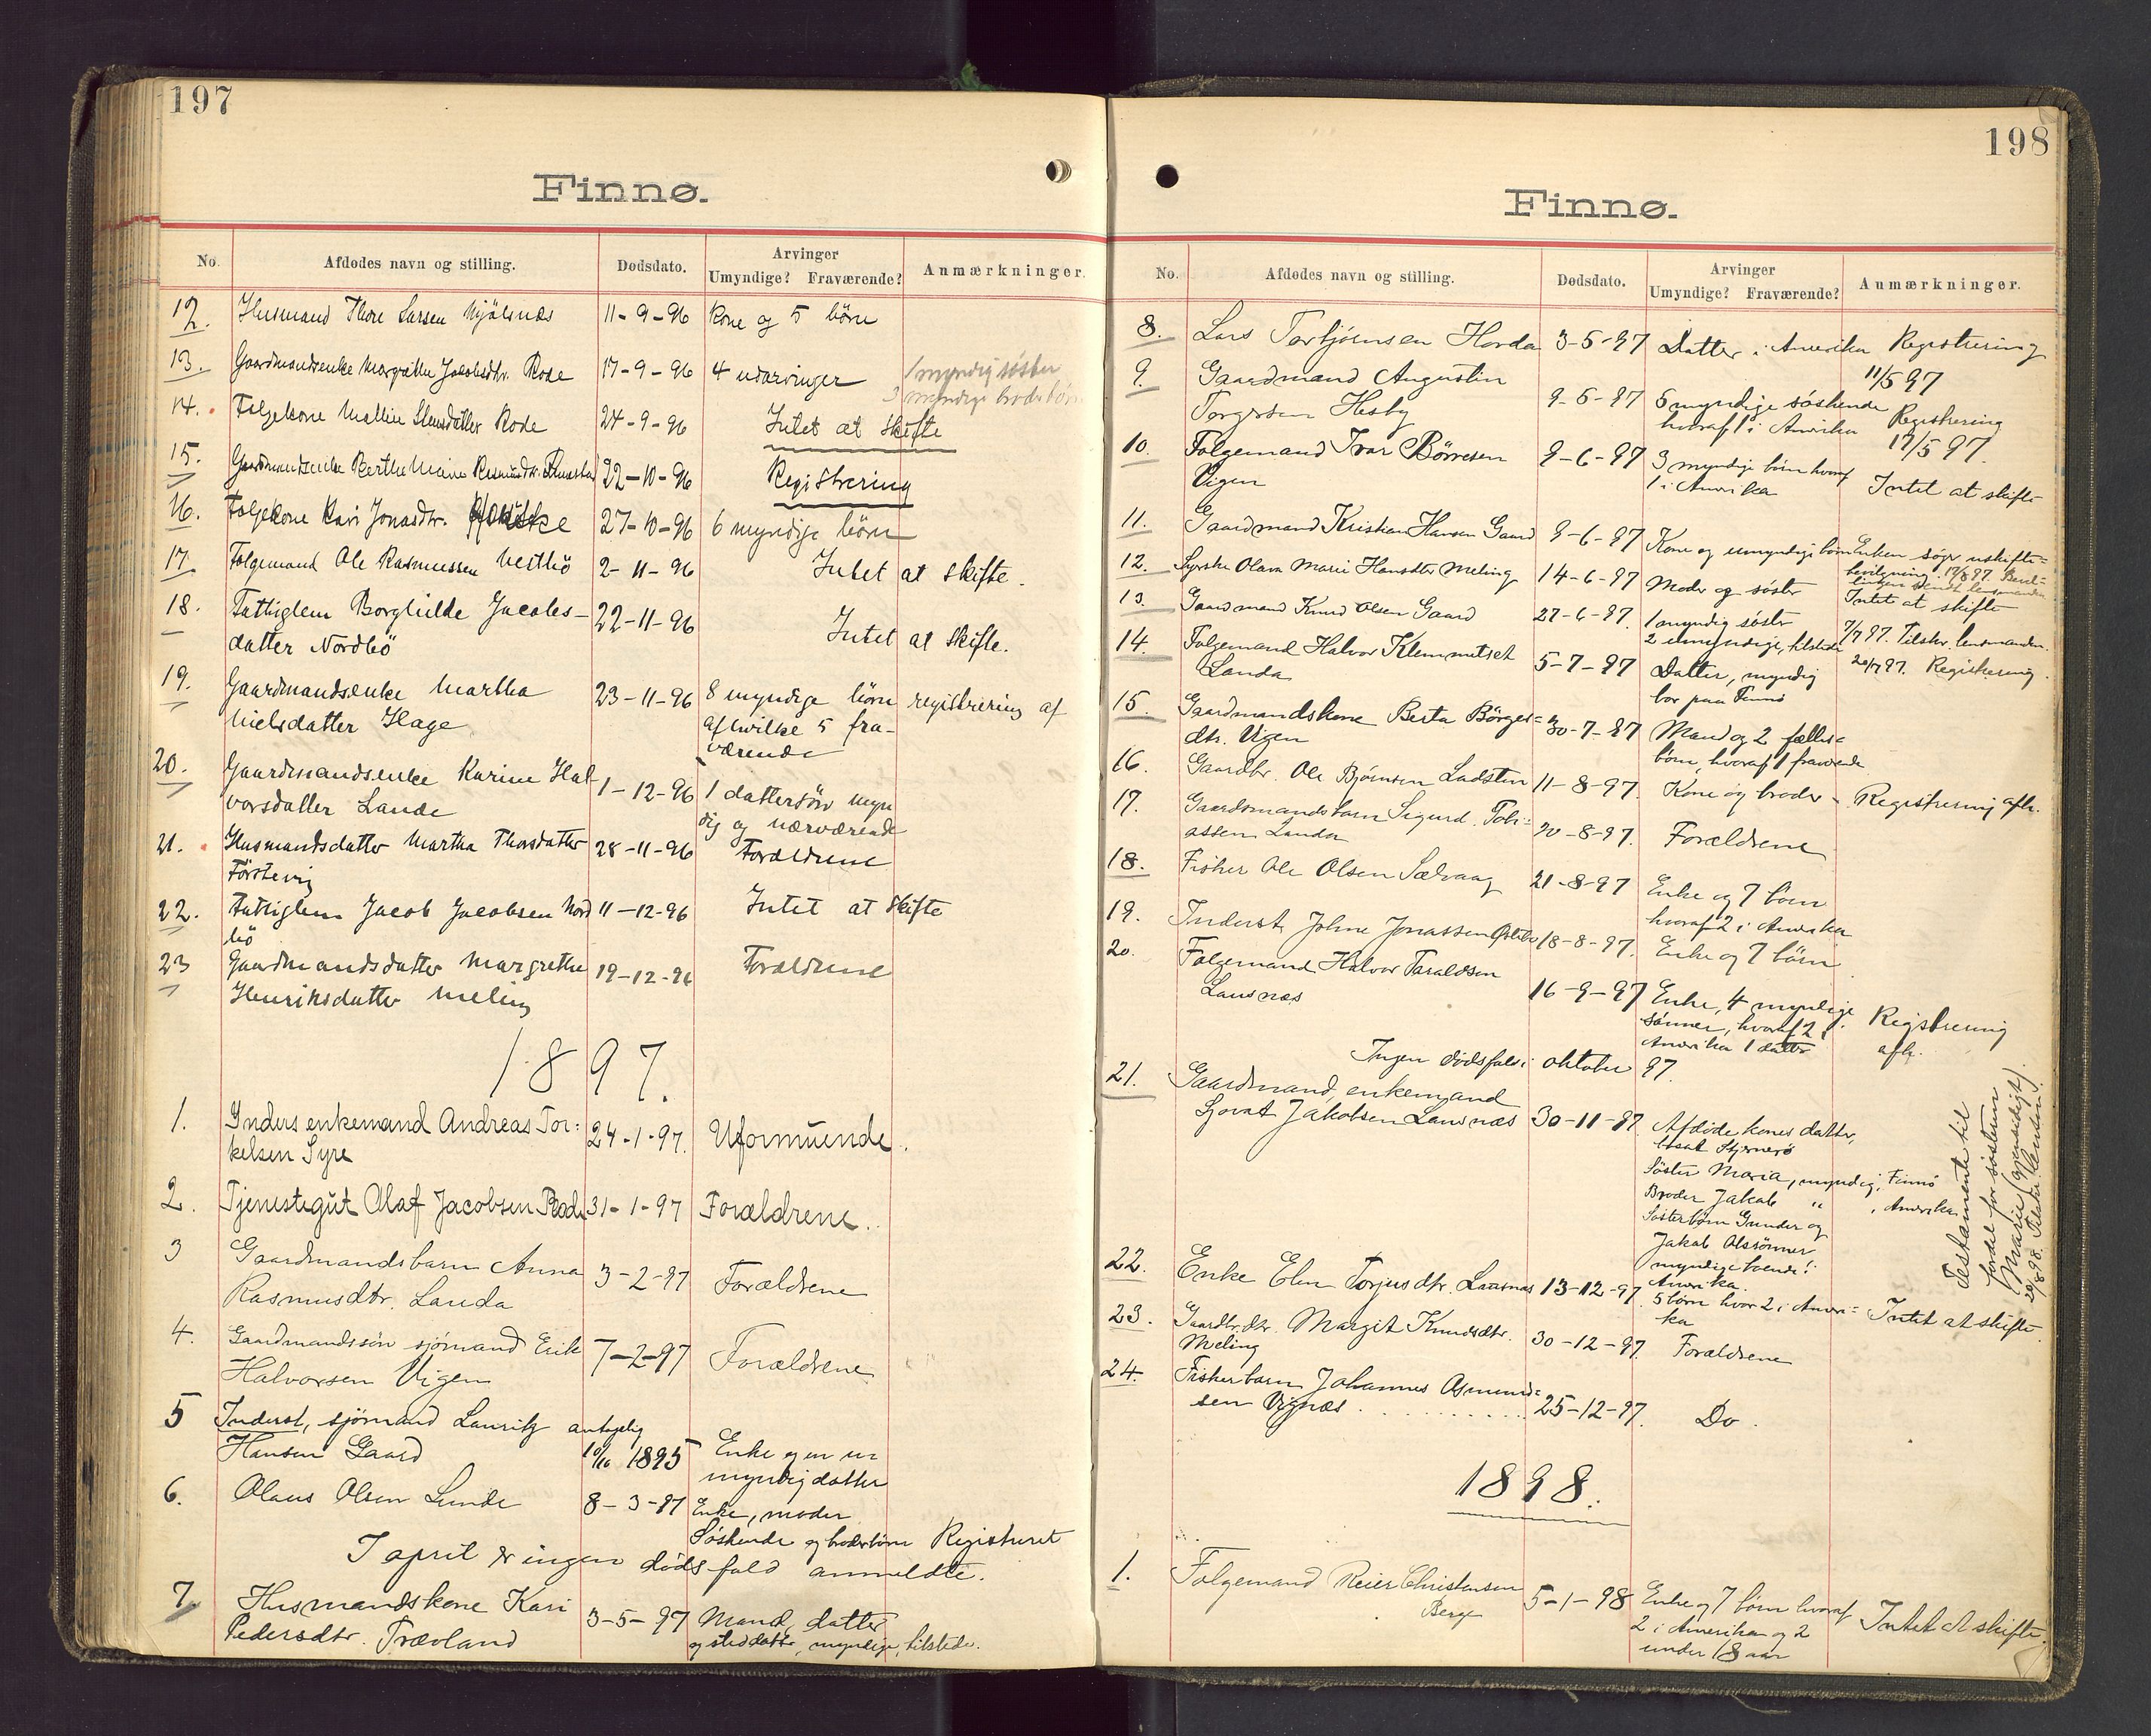 197
Finnø.
No.
Afdødes navn og stilling.
Dødsdato.
Arvinger
Umyndige? Fraværende?
Anmærkninger.
12. Husmand Thore Larsen 11-9-96 kone og 5 börn
13. Gaardmandsenke Margrethe Jacobsdtr. Rode 17-9-96 4 udarvinger 1 myndig söster
3 myndige broderbörn
14. Folgekone Malline Rode 24-9-96 Intet at Skifte
15. Gaardmandsenke Berthe Marie Rasmusdtr. 22-10-96 Registrering
16. Folgekone Kari Jonasdtr. 27-10-96 6 myndige börn
17. Folgemand Ole Rasmussen Vestbö 2-11-96 Intet at skifte.
18. Fattiglem Borghilde Jacobs-
datter Nordbö 22-11-96 Intet at skifte.
19. Gaardmandsenke Martha 23-11-96 8 myndige börn registrering af
Nielsdatter Hage af hvilke 5 fra-
værende
20. Gaardmandsenke Karine Hal
vorsdatter Lande 1-12-96 1 dattersön myn
dig og nærværende
21. Husmandsdatter Martha Thorsdatter 28-11-96 Forældrene
22. Fattiglem Jacob Jacobsen Nord 11-12-96 Intet at Skifte
bö
23 Gaardmandsdatter Margrethe 19-12-96 Forældrene
Henriksdatter Meling
1897.
1. Inders enkemand Andreas Tor:
kelsen Syre 24-1-97. Uformuende.
2. Tjenestegut Olaf Jacobsen Rode 31-1-97 Forældrene.
3 Gaardmandsbarn Anna 3-2-97 Forældrene
Rasmusdtr. Landa
4. Gaardmandssøn sjömand Erik 7-2-97 Forældrene
Halvorsen Vigen
5 Inderst, sjömand Lauritz antagelig
Hansen Gaard 10/10 1895 Enke og en u=
myndig datter
6. Olaus Olsen Lunde 8-3-97 Enke, moder
Söskende og broderbörn Registreret
I april er ingen dödsfald anmeldte.
7. Husmandskone Kari 3-5-97 Mand, datter
Pedersdtr. Trævland og steddatter, myndige, tilstede.
198
Finnø.
No.
Afdødes navn og stilling.
Dødsdato.
Arvinger
Umyndige? Fraværende?
Anmærkninger.
8. Lars Torbjörnsen Horda 3-5-97 Datter i Amerika Registrering
11/5 97
9. Gaardmand Augustin
Torgersen Hesby 9-5-97 6 myndige söskende
hvoraf 1 i Amerika Registrering
17/5 97.
10. Folgemand Ivar Börresen 9-6-97 3 myndige börn hvoraf
Vigen 1 i Amerika Intet at skifte
11. Gaardmand Kristian Hansen Gaard 9-6-97 Kone og umyndige börn Enken söger uskifte=
bevilgning. 12/8 97. Bevil=
lingen sendt lensmanden
12. Syerske Olava Marie Hansdtr Meling 14-6-97 Moder og söster Intet at skifte
13. Gaardmand Knud Olsen Gaard 27-6-97. 1 myndig söster
2 umyndige, tilstede 7/7 97. Tilskr. lensmanden.
14. Folgemand Halvor Klemmetsen
Landa 5-7-97 Datter, myndig
bor paa Finnö 20/7 97. Registrering.
15. Gaardmandskone Berta Börges=
dtr. Vigen 30-7-97 Mand og 2 fælles=
börn, hvoraf 1 fraværende
16. Gaardbr. Ole Bjørnsen Ladsten 11-8-97. Kone og broder - Registrering afh.
17. Gaardsmandsbarn Sigurd Tobi=
assen Landa 20-8-97. Forældrene
18. Fisker Ole Olsen Sælvaag 21-8-97 Enke og 7 börn
hvoraf 2 i Amerika
19. Inderst Johne Jonassen 18-8-97. Enke og 7 börn
20. Folgemand Halvor Taraldsen
Lausnæs 16-9-97 Enke, 4 myndige
sönner, hvoraf 2 i
Amerika 1 datter Registrering
afh.
Ingen dödsfald i oktober 97.
21. Gaardmand, enkemand
Sjovat Jakobsen Lausnæs 30-11-97. Afdöde kones datter,
bosat Stjernerö
Söster Maria, myndig, Finnö
Broder Jakob " , Amerika
Søsterbörn Gunder og
Jakob Olssönner
myndige boende i
Amerika.
Testamente til
fordel for søsteren
Marie (gjensidigt).
29/8 98. Tilskr. lensm.
22. Enke Elen Torjusdtr. Lausnæs 13-12-97. 5 börn hvor 2 i Ameri=
ka Intet at skifte.
23. Gaardbr.dtr. Margit Knudsdtr.
Meling 30-12-97. Forældrene
24. Fiskerbarn Johannes Asmund=
sen Vignæs 25-12-97. Do.
1898.
1. Folgemand Reier Christensen
Berge 5-1-98 Enke og 7 börn hvoraf
2 i Amerika og 2
under 18 aar Intet at skifte.